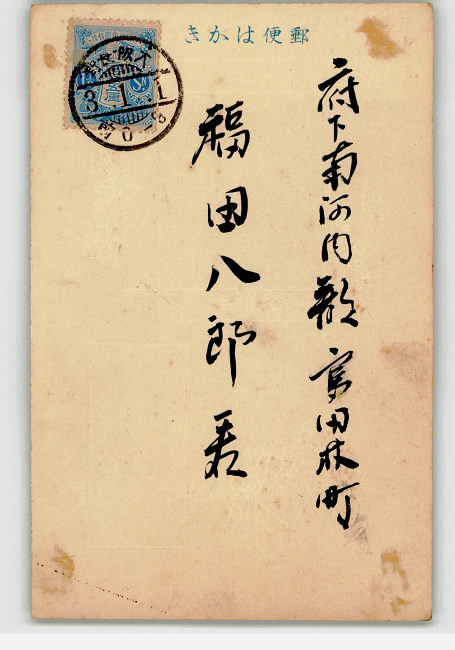 きかは便郵
府下南河内郡富田林町
福田八郎君
大阪
3.1.1